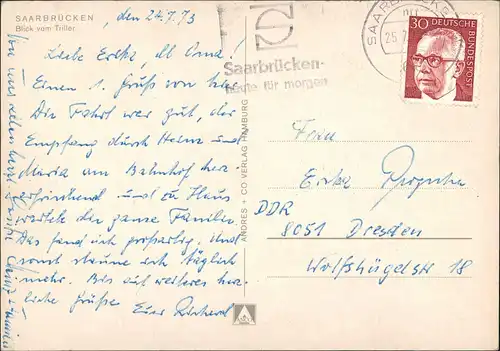 SAARBRÜCKEN
Blick vom Triller
, den 24.7.73
Liebe Erika, lb Oma!
Einen 1. Gruß von hier.
Die Fahrt war gut, der
Empfang durch Heinz und
Maria am Bahnhof herz-
erfrischend und zu Haus
wartete die ganze Familie.
Das fand ich großartig. Und
sonst staune ich täglich
mehr. Bis auf weiteres herz-
liche Grüße Euer Richard
Von uns allen herzl. Grüße
ANDRES + CO VERLAG HAMBURG
Saarbrücken-
heute für morgen
SAARBRÜCKEN
25.7
30 DEUTSCHE
BUNDESPOST
Frau
Erika
DDR
8051 Dresden
Wolfshügelstr 18